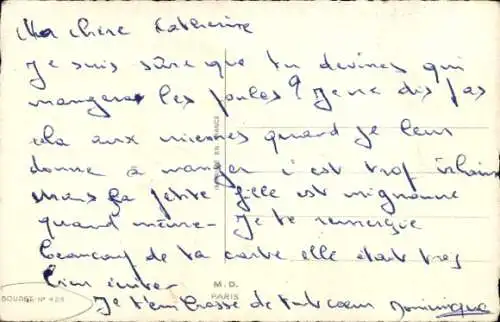 Ma chère Katherine
Je suis sûre que tu devines qui
mangera les poules? Je ne dis pas
cela aux miennes quand je leur
donne à manger c'est trop vilain
mais la petite fille est mignonne
quand même - Je te remercie
beaucoup de ta carte elle était très
bien
Je t'embrasse de tout cœur Dominique
M.D.
PARIS
MADE IN FRANCE